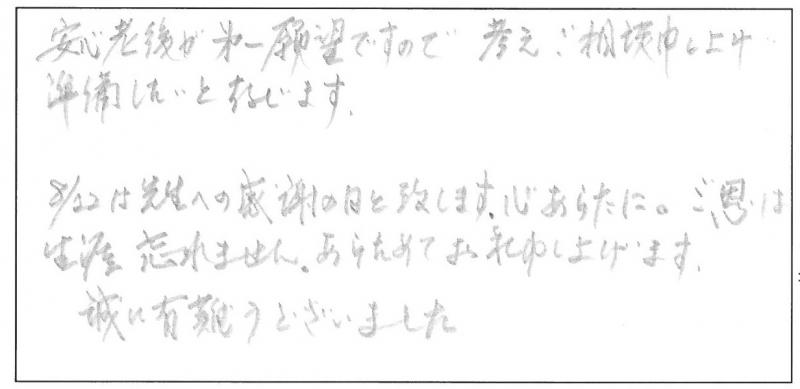 安心老後が第一願望ですので 考え、ご相談申し上げ
準備したいと存じます。
8/22は先生への感謝の日と致します。心あらたに。ご恩は
生涯忘れません。あらためてお礼申し上げます。
誠に有難うございました